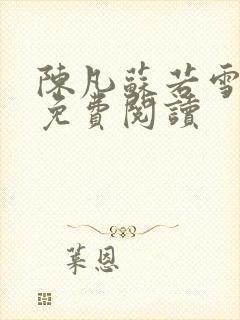 陳凡蘇若雪
免費閱讀
葉恩